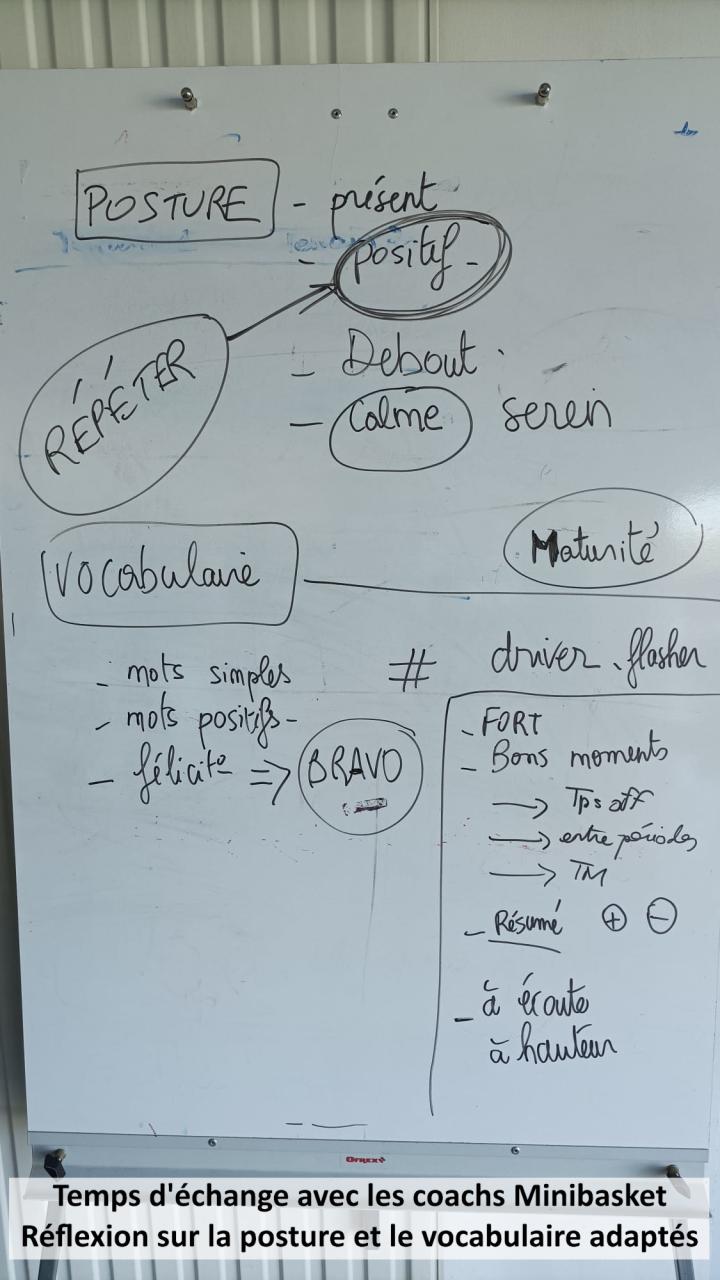 POSTURE - présent
- positif -
RÉPÉTER
- Debout
- Calme serein
Maturité
Vocabulaire
- mots simples # driver, flasher
- mots positifs -
- félicite => BRAVO
- FORT
- Bons moments
→ Tps off
→ entre périodes
→ TM
- Résumé + -
- à écoute
à hauteur
Temps d'échange avec les coachs Minibasket
Réflexion sur la posture et le vocabulaire adaptés